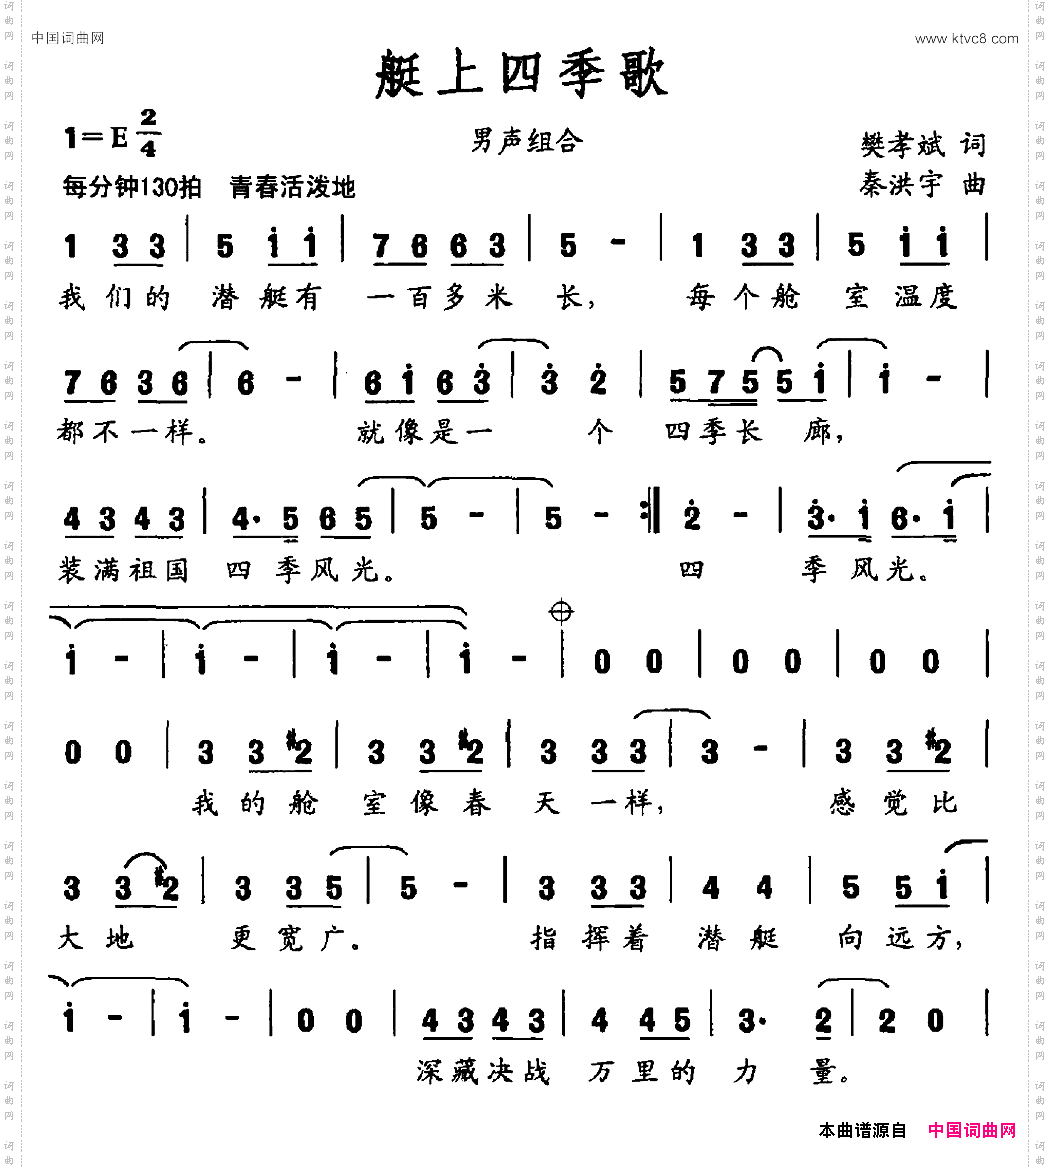 中国词曲网 www.ktvc8.com
艇上四季歌
1=E 2/4 男声组合 樊孝斌 词
每分钟130拍 青春活泼地 秦洪宇 曲
1 3 3 | 5 i i | 7 6 6 3 | 5 - | 1 3 3 | 5 i i |
我们的 潜艇有 一百多米 长, 每个舱 室温度
7 6 3 6 | 6 - | 6 i 6 3 | 3 2 | 5 7 5 5 i | i - |
都不一样。 就像是一 个 四季长 廊,
4 3 4 3 | 4· 5 6 5 | 5 - | 5 - :| 2 - | 3· i 6· i |
装满祖国 四季风光。 四 季风光。
i - | i - | i - | i - | 0 0 | 0 0 | 0 0 |
0 0 | 3 3 2 | 3 3 2 | 3 3 3 | 3 - | 3 3 2 |
我的舱 室像春 天一样, 感觉比
3 3 2 | 3 3 5 | 5 - | 3 3 3 | 4 4 | 5 5 i |
大地 更宽广。 指挥着 潜艇 向远方,
i - | i - | 0 0 | 4 3 4 3 | 4 4 5 | 3· 2 | 2 0 |
深藏决战 万里的 力 量。
本曲谱源自 中国词曲网